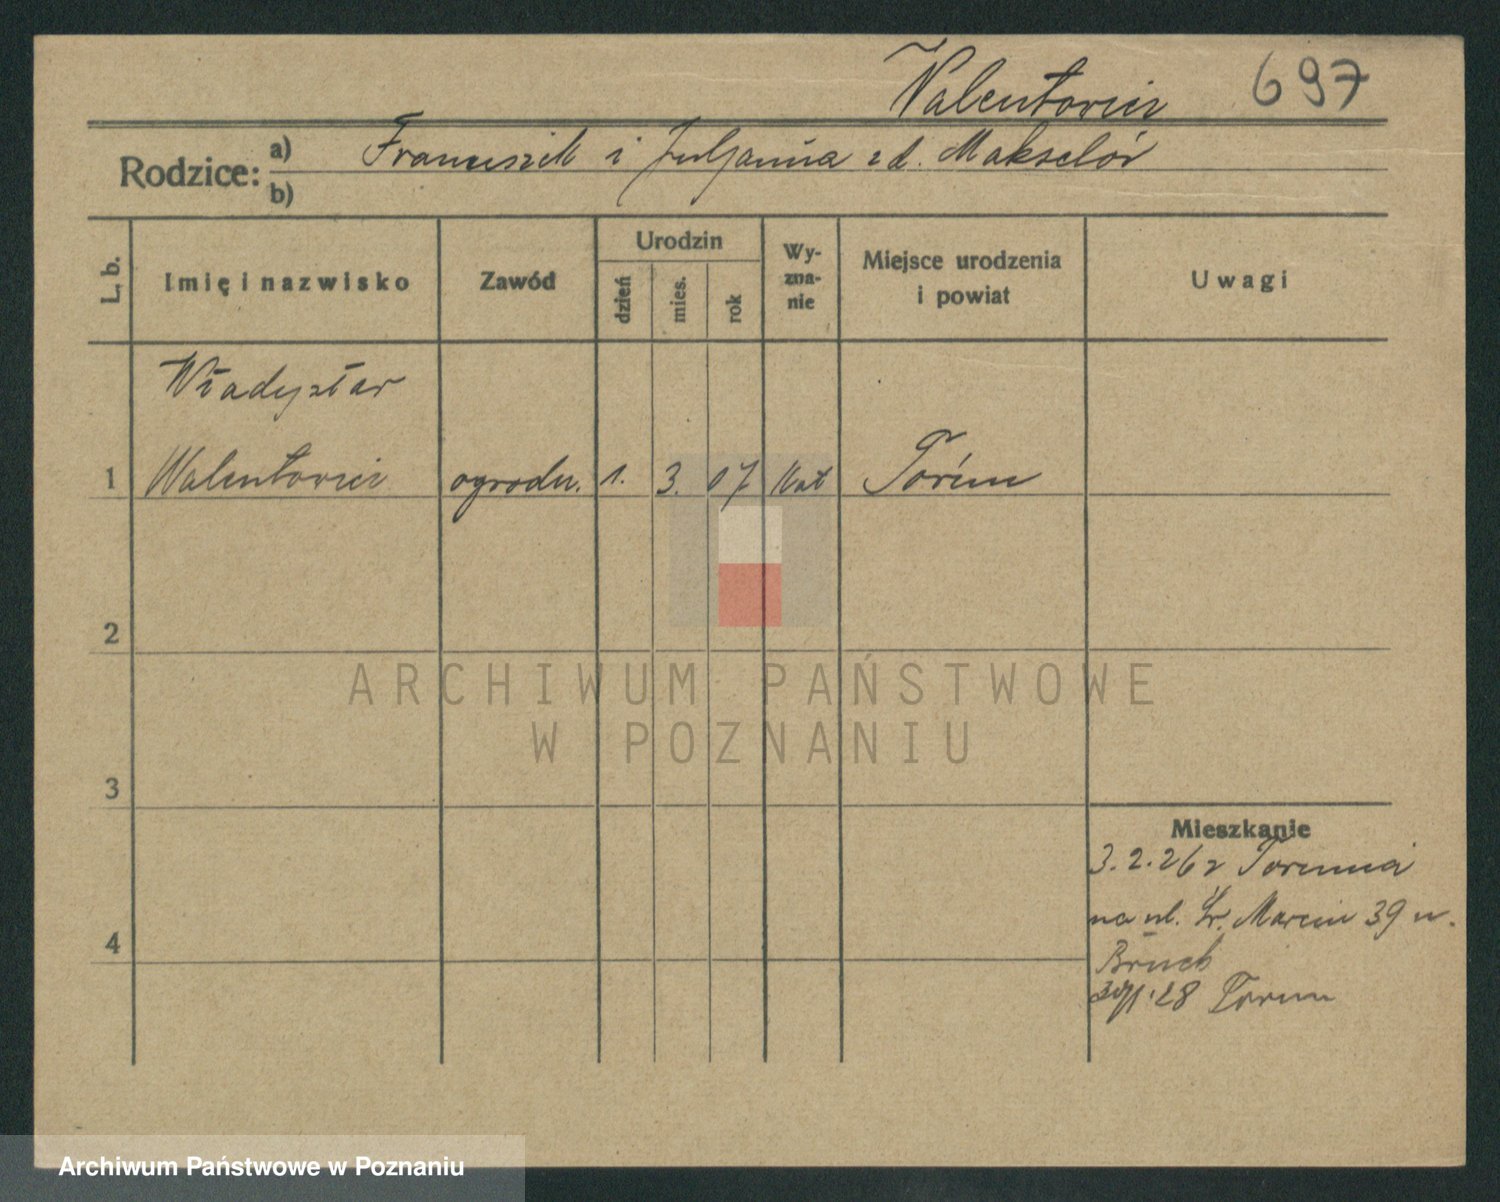 Walentowicz 697
Rodzice: a) Franciszek i Juljanna z d. Makselór
b)
L. b.
Imię i nazwisko
Zawód
Urodzin
dzień
mies.
rok
Wy-
zna-
nie
Miejsce urodzenia
i powiat
Uwagi
Władysław
1 Walentowicz ogrodn. 1. 3. 07 kat Toruń
2
3
4
Mieszkanie
3.2.26 z Torunia
na ul. Św. Marcin 39 u.
Bruch
28 Torun
ARCHIWUM PAŃSTWOWE
W POZNANIU
Archiwum Państwowe w Poznaniu